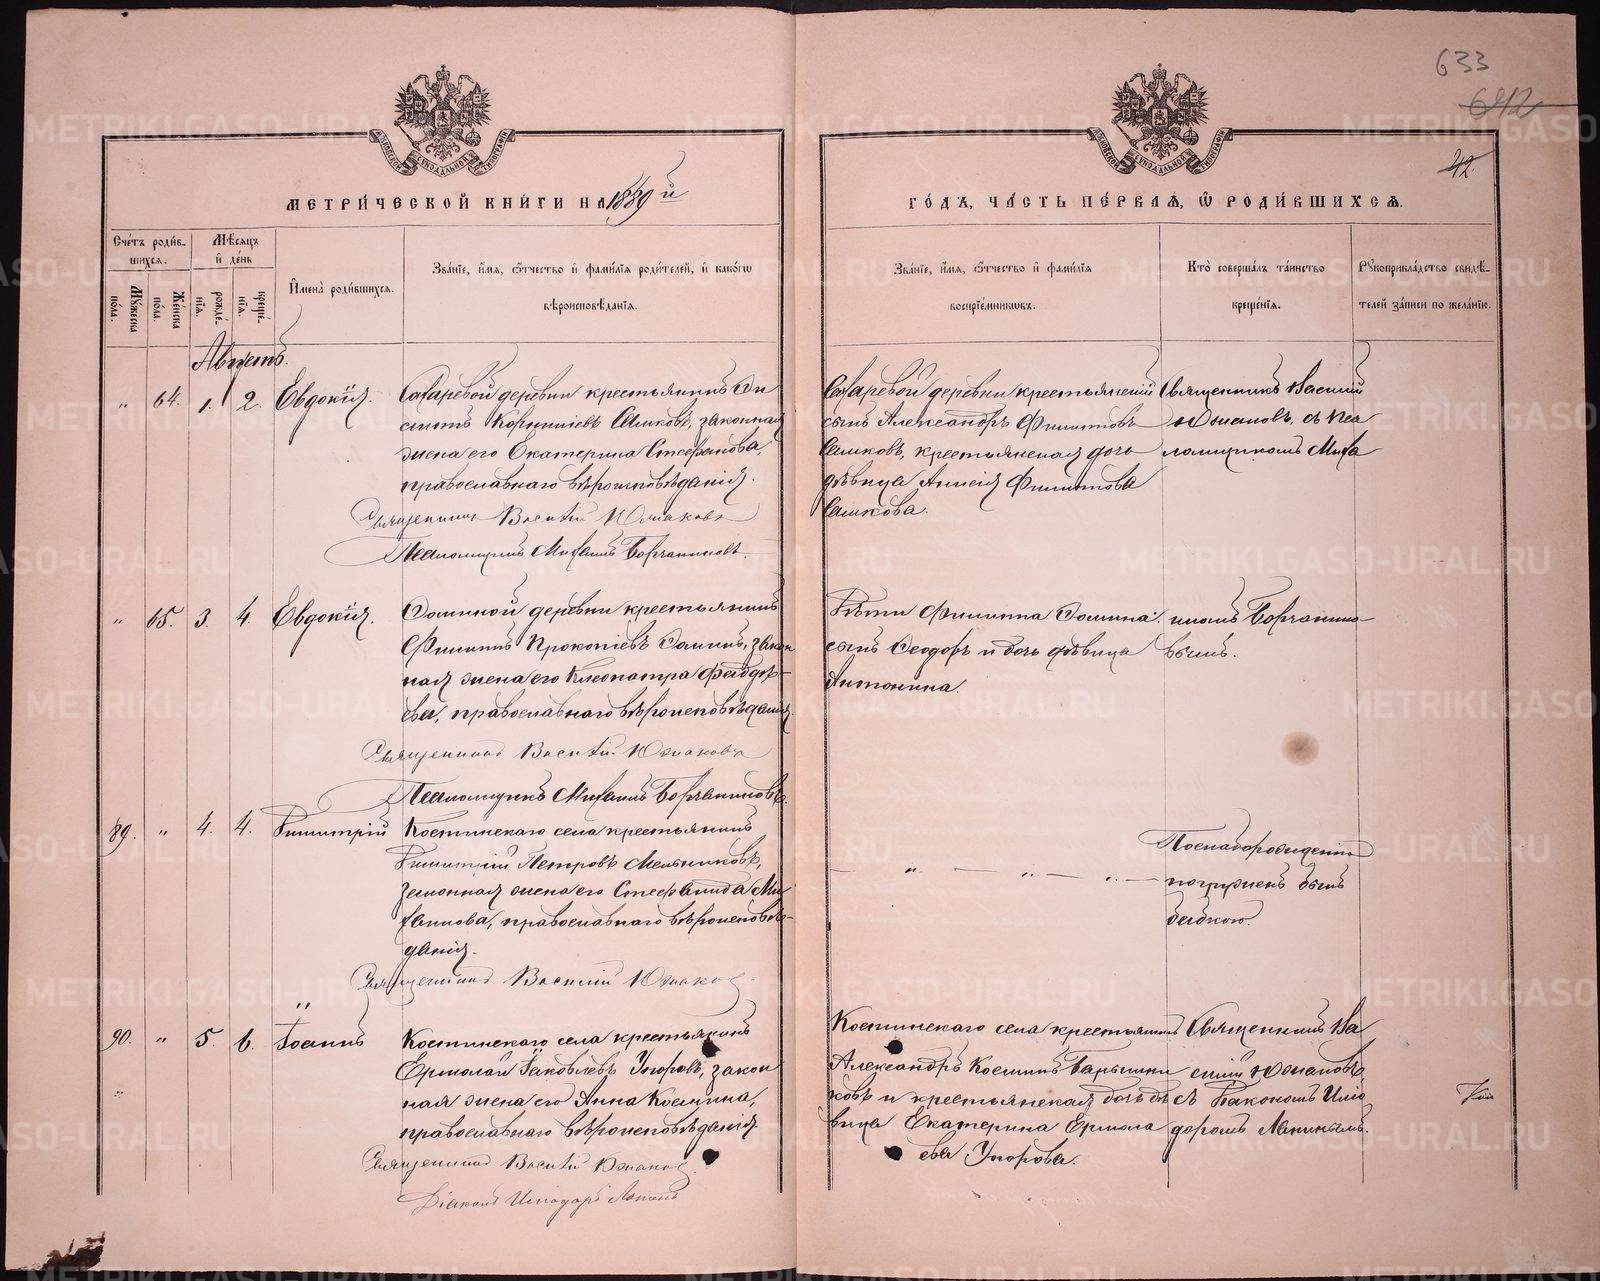 633
642
42.
МЕТРИ́ЧЕСКОЙ КНИ́ГИ НА 1889й
ГО́ДЪ, ЧА́СТЬ ПЕ́РВАЯ, Ѡ РОДИ́ВШИХСЯ.
Сче́тъ роди́в-
шихся.
Му́жеска по́ла.
Же́нска по́ла.
Мѣ́сяцъ
и҆ де́нь
рожде́-
нїя.
креще́-
нїя.
И҆мена̀ роди́вшихся.
Зва́нїе, и҆́мя, ѻ҆́тчество и҆ фами́лїя роди́телей, и҆ како́гѡ
вѣроисповѣ́данїя.
Зва́нїе, и҆́мя, ѻ҆́тчество и҆ фами́лїя
воспрїе́мникѡвъ.
Кто̀ соверша́лъ та́инство
креще́нїя.
Рꙋкоприкла́дство свидѣ́-
телей за́писи по жела́нїю.
Августъ.
„ 64. 1. 2. Евдокія.
деревни крестьянинъ
Корниліевъ законная
жена его Екатерина Стефанова,
православнаго вѣроисповѣданія.
Священникъ Василій Южаковъ
Псаломщикъ Михаилъ Борчаниновъ.
деревни крестьянскій
сынъ Александръ Филипповъ
крестьянская дочь
дѣвица Филиппова
Священникъ Василій
Южаковъ, съ пса
ломщикомъ Миха
„ 65. 3. 4. Евдокія.
деревни крестьянинъ
Филиппъ Прокопіевъ закон
ная жена его Клеопатра Феодор-
ова, православнаго вѣроисповѣданія.
Священникъ Василій Южаковъ
Псаломщикъ Михаилъ Борчаниновъ.
Дѣти Филиппа
сынъ Феодоръ и дочь дѣвица
Антонина.
иломъ Борчанино-
вымъ.
89. „ 4. 4. Димитрій
Костинскаго села крестьянинъ
Димитрій Петровъ Мельниковъ,
законная жена его Стефанида Ми
хаилова, православнаго вѣроисповѣ-
данія.
Священникъ Василій Южаковъ
— „ — „ — „ —
По слаборожденію
погруженъ былъ
бабкою.
90. „ 5. 6. Іоаннъ
Костинскаго села крестьянинъ
Ермолай Іаковлевъ Упоровъ, закон
ная жена его Анна Космина,
православнаго вѣроисповѣданія.
Священникъ Василій Южаковъ
Діаконъ Иліодоръ
Костинскаго села крестьянинъ
Александръ Косминъ
ковъ и крестьянская дочь дѣ
вица Екатерина Ермола
ева Упорова.
Священникъ Ва
силій Южаковъ,
съ Діакономъ Иліо
доромъ
METRIKI.GASO-URAL.RU